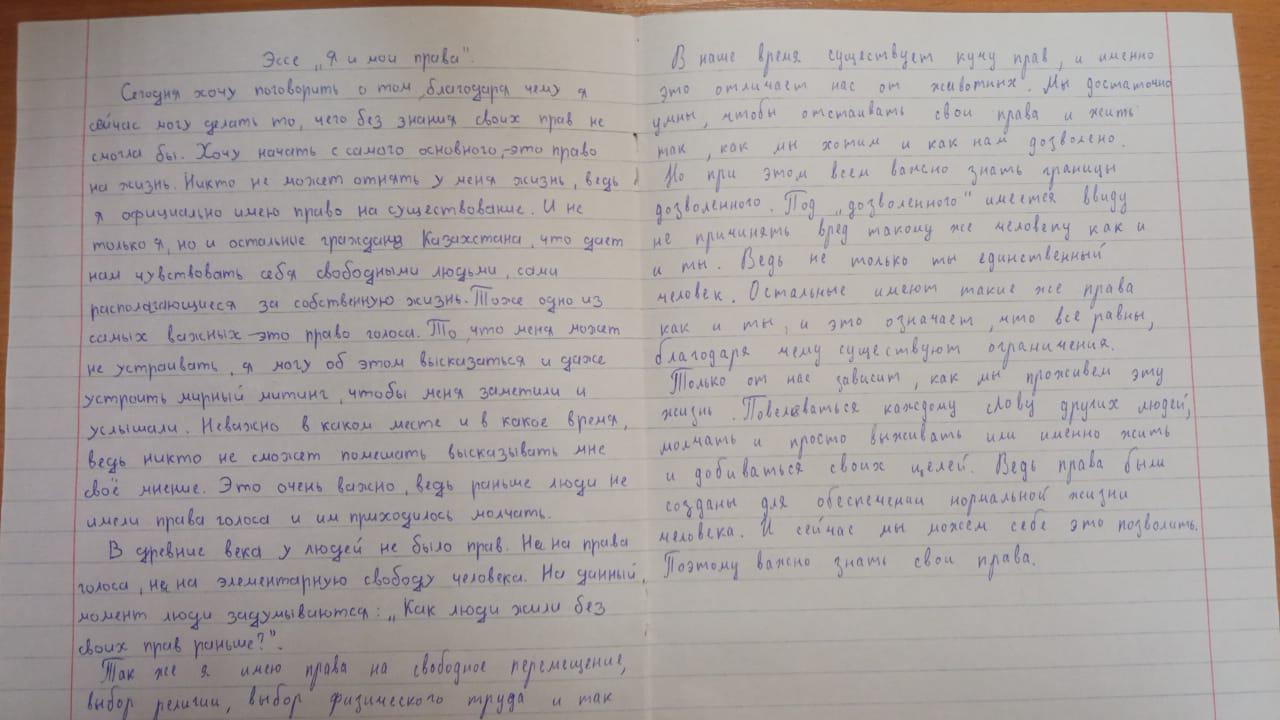 Эссе „Я и мои права".
Сегодня хочу поговорить о том, благодаря чему я
сейчас могу делать то, чего без знания своих прав не
смогла бы. Хочу начать с самого основного,-это право
на жизнь. Никто не может отнять у меня жизнь, ведь
я официально имею право на существование. И не
только я, но и остальные граждане Казахстана, что дает
нам чувствовать себя свободными людьми, сами
располагающиеся за собственную жизнь. Тоже одно из
самых важных-это право голоса. То, что меня может
не устраивать, я могу об этом высказаться и даже
устроить мирный митинг, чтобы меня заметили и
услышали. Неважно в каком месте и в какое время,
ведь никто не сможет помешать высказывать мне
своё мнение. Это очень важно, ведь раньше люди не
имели права голоса и им приходилось молчать.
В древние века у людей не было прав. Не на права
голоса, не на элементарную свободу человека. На данный
момент люди задумываются: „Как люди жили без
своих прав раньше?".
Так же я имею права на свободное перемещение,
выбор религии, выбор физического труда и так
В наше время существует кучу прав, и именно
это отличает нас от животных. Мы достаточно
умны, чтобы отстаивать свои права и жить
так, как мы хотим и как нам дозволено.
Но при этом всем важно знать границы
дозволенного. Под „дозволенного" имеется ввиду
не причинять вред такому же человеку как и
и ты. Ведь не только ты единственный
человек. Остальные имеют такие же права
как и ты, и это означает, что все равны,
благодаря чему существуют ограничения.
Только от нас зависит, как мы проживем эту
жизнь. Повеловаться каждому слову других людей,
молчать и просто выживать или именно жить
и добиваться своих целей. Ведь права были
созданы для обеспечении нормальной жизни
человека. И сейчас мы можем себе это позволить.
Поэтому важно знать свои права.